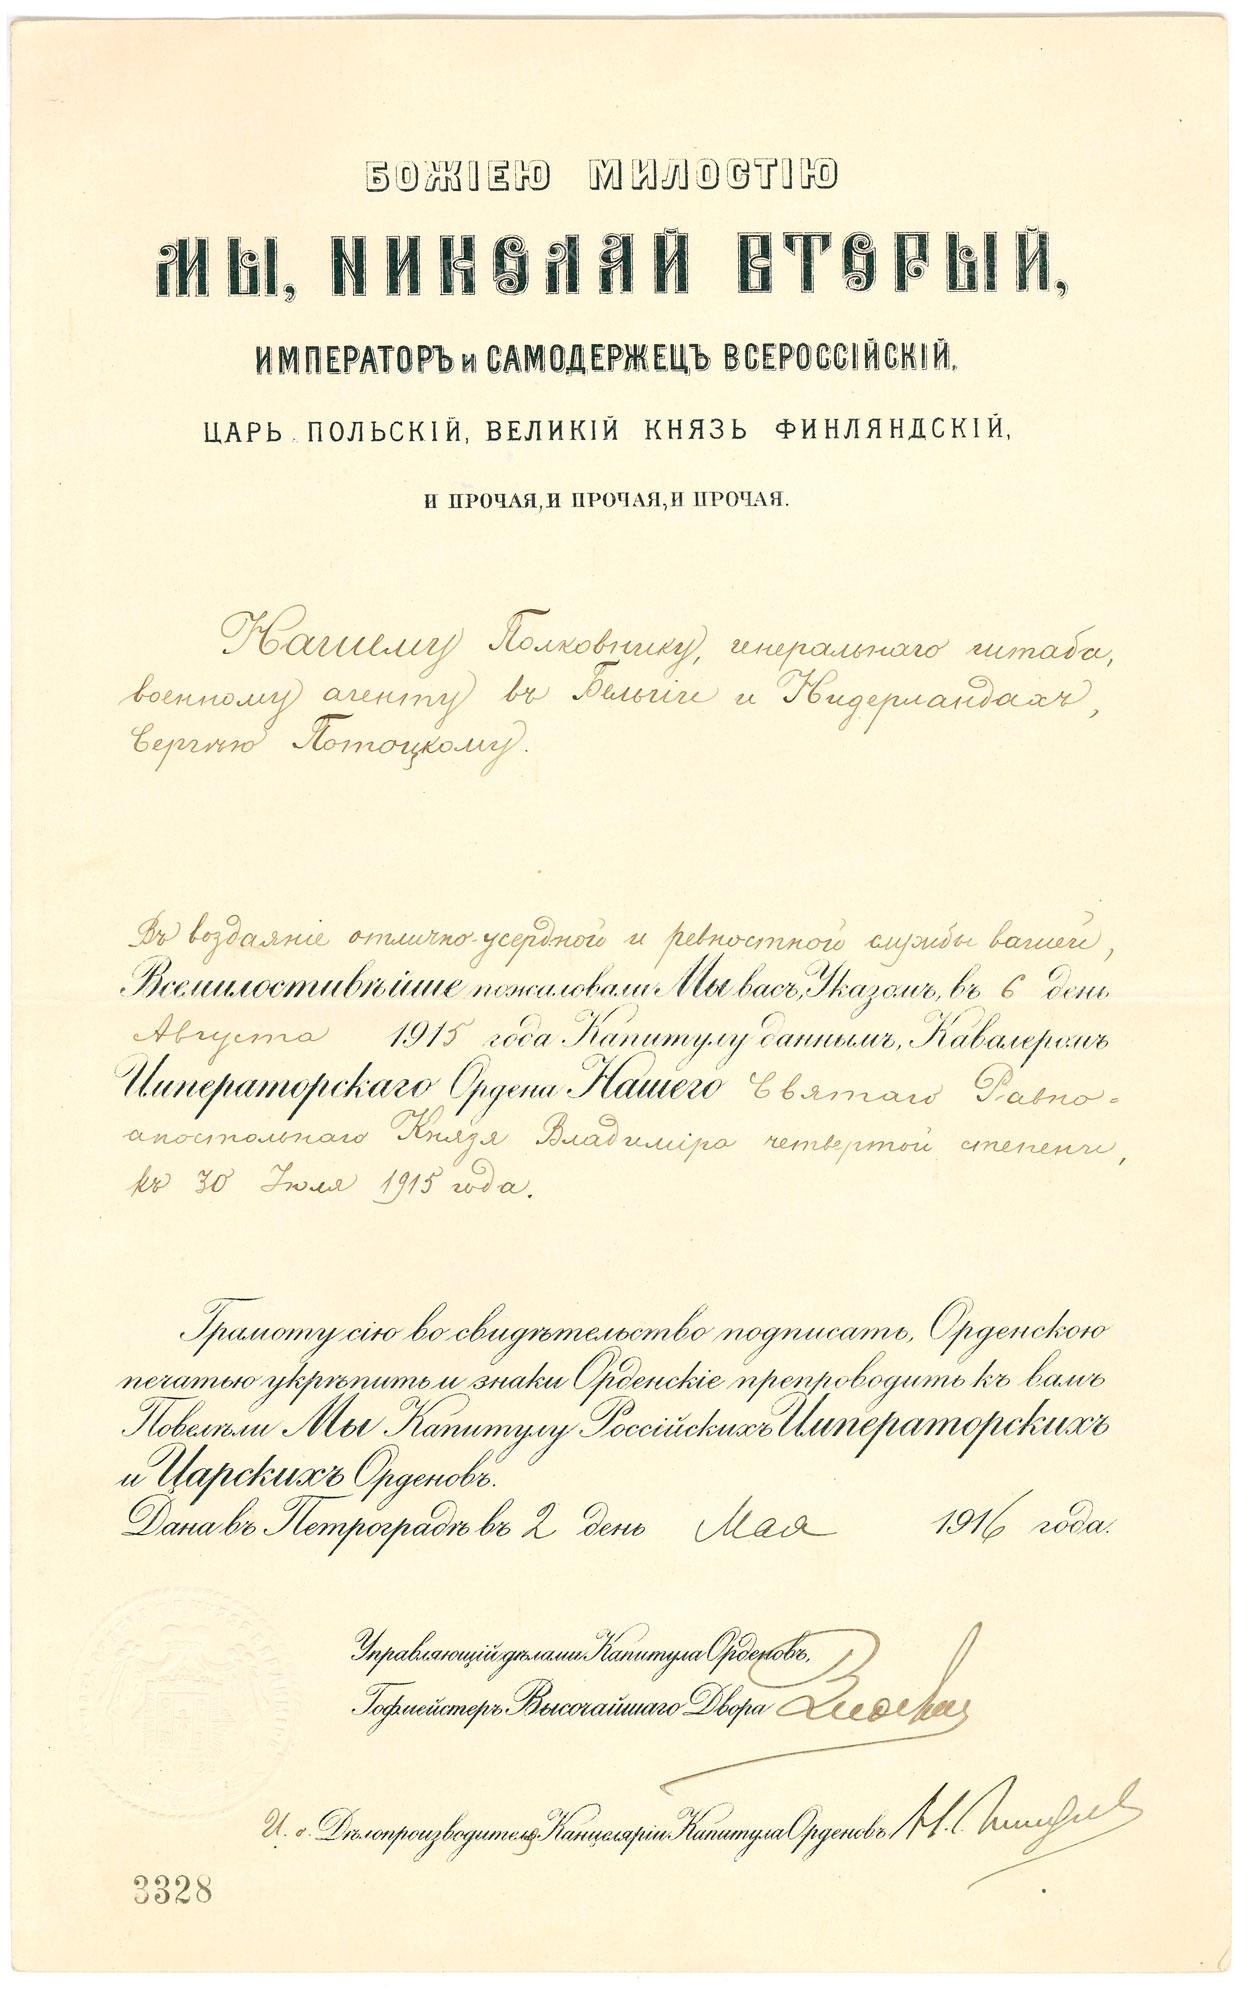 БОЖІЕЮ МИЛОСТІЮ
МЫ, НИКОЛАЙ ВТОРЫЙ,
ИМПЕРАТОРЪ и САМОДЕРЖЕЦЪ ВСЕРОССІЙСКІЙ,
ЦАРЬ ПОЛЬСКІЙ, ВЕЛИКІЙ КНЯЗЬ ФИНЛЯНДСКІЙ,
И ПРОЧАЯ, И ПРОЧАЯ, И ПРОЧАЯ.
Нашему Полковнику, генеральнаго штаба,
военному агенту въ Бельгіи и Нидерландахъ,
Сергѣю Потоцкому.
Въ воздаяніе отлично-усердной и ревностной службы вашей,
Всемилостивѣйше пожаловали Мы васъ, Указомъ, въ 6 день
Августа 1915 года Капитулу даннымъ, Кавалеромъ
Императорскаго Ордена Нашего Святаго Равно-
апостольнаго Князя Владиміра четвертой степени,
къ 30 Іюля 1915 года.
Грамоту сію во свидѣтельство подписать, Орденскою
печатью укрѣпить и знаки Орденскіе препроводить къ вамъ
Повелѣли Мы Капитулу Россійскихъ Императорскихъ
и Царскихъ Орденовъ.
Дана въ Петроградѣ въ 2 день Мая 1916 года.
Управляющій дѣлами Капитула Орденовъ,
Гофмейстеръ Высочайшаго Двора
И. о. Дѣлопроизводителя Канцеляріи Капитула Орденовъ
3328